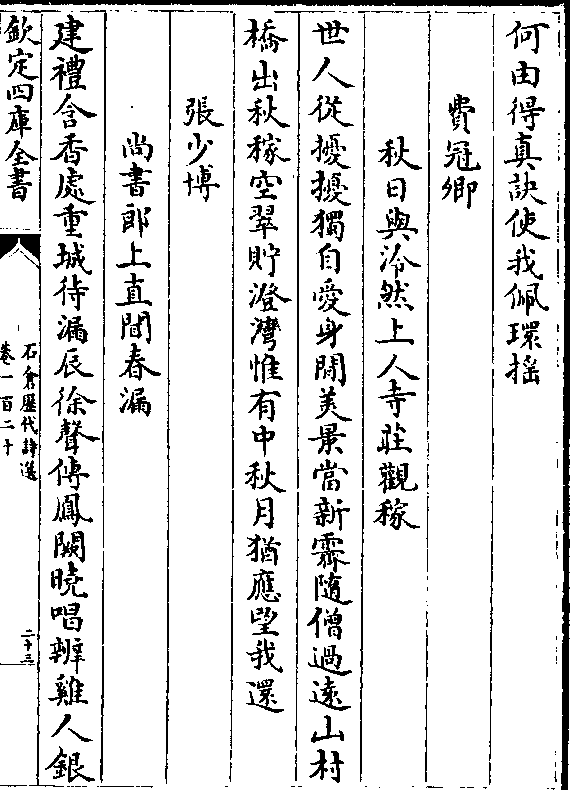 何由得真訣使我佩環揺
費冠卿
秋日與冷然上人寺莊觀稼
世人從擾擾獨自愛身閒美景當新霽隨僧過遠山村
橋出秋稼空翠貯澄灣惟有中秋月猶應望我還
張少博
尚書郎上直聞春漏
建禮含香處重城待漏辰徐聲傳鳳闕曉唱辨雞人銀
欽定四庫全書
石倉歴代詩選
卷一百二十
二十三